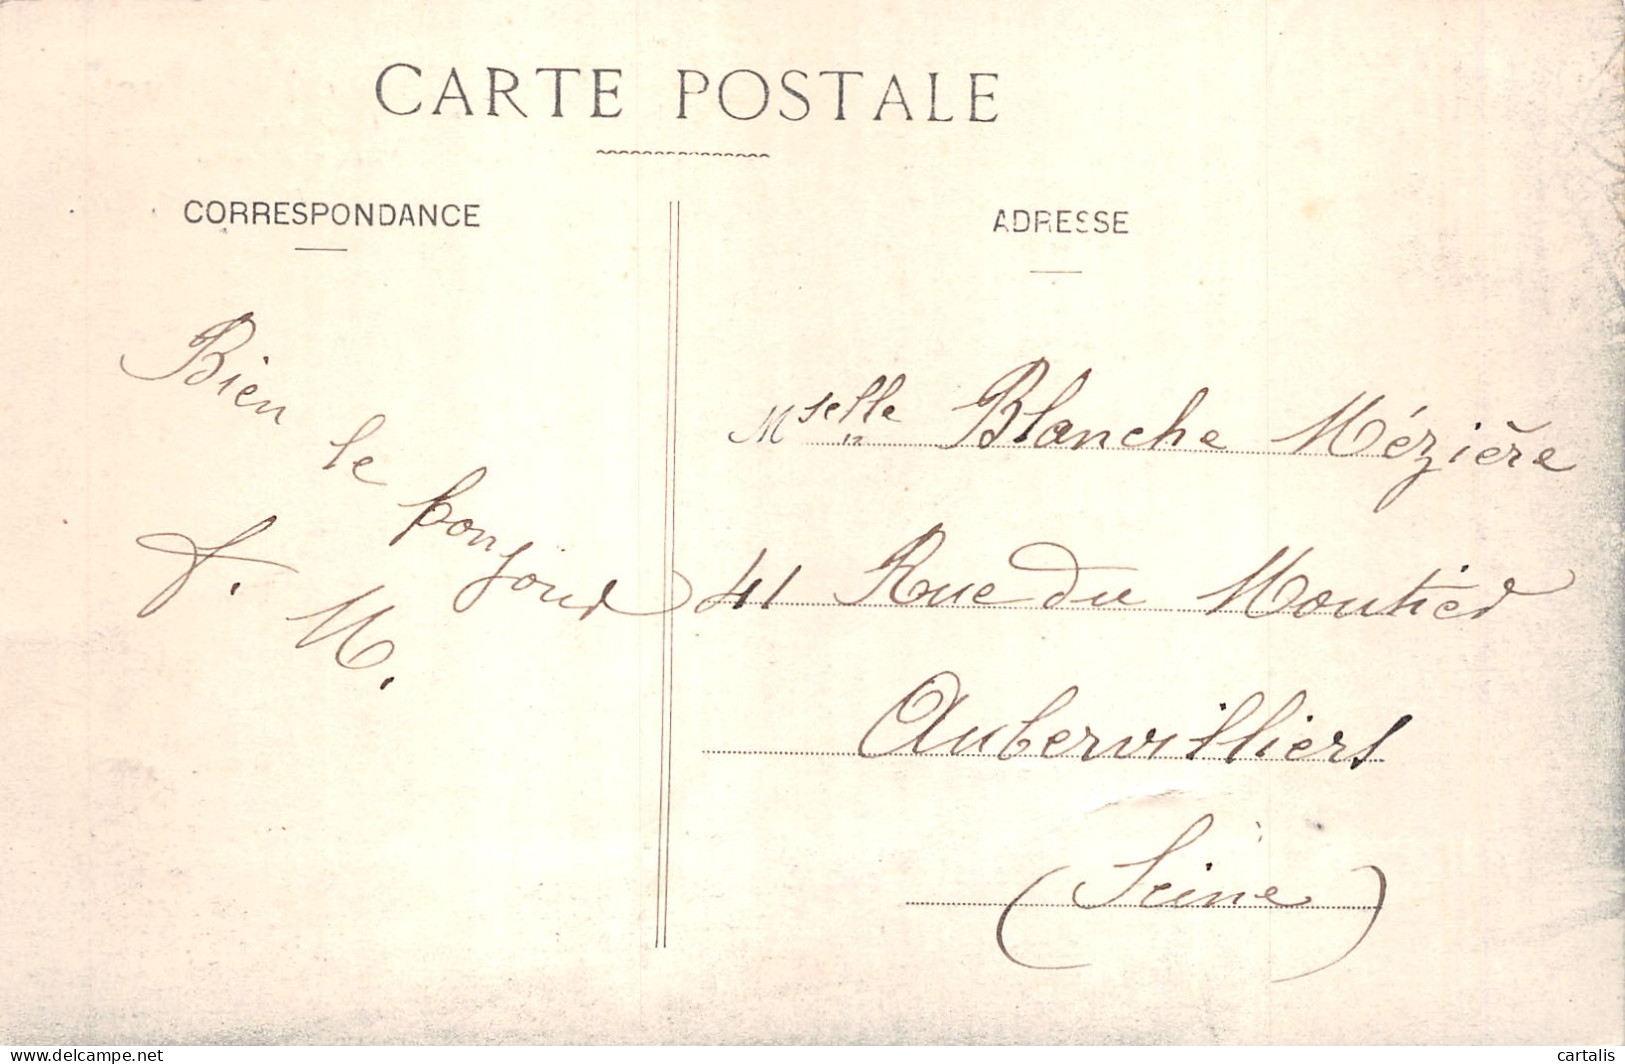 CARTE POSTALE
CORRESPONDANCE
ADRESSE
Bien
le
bonjour
F. M.
Mselle Blanche Mézière
41 Rue du Moutier
Aubervilliers
(Seine)
https://www.delcampe.net
cartalis